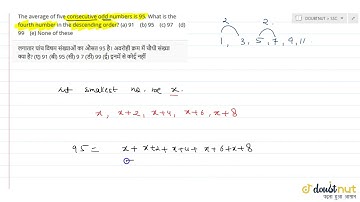 The average of five consecutive odd numbers is 95. What is the
fourth number in the descending order? (a) 91 (b) 95 (c) 97 (d)
99 (e) None of these
लगातार पांच विषम संख्याओं का औसत 95 है। अवरोही क्रम में चौथी संख्या
क्या है? (ए) 91 (बी) 95 (सी) 9 7 (डी) 99 (ई) इनमें से कोई नहीं
2 2
1, 3, 5, 7, 9, 11
let smallest no. be x.
x, x+2, x+4, x+6, x+8
95 = x + x+2 + x+4 + x+6 + x+8
doubtnut